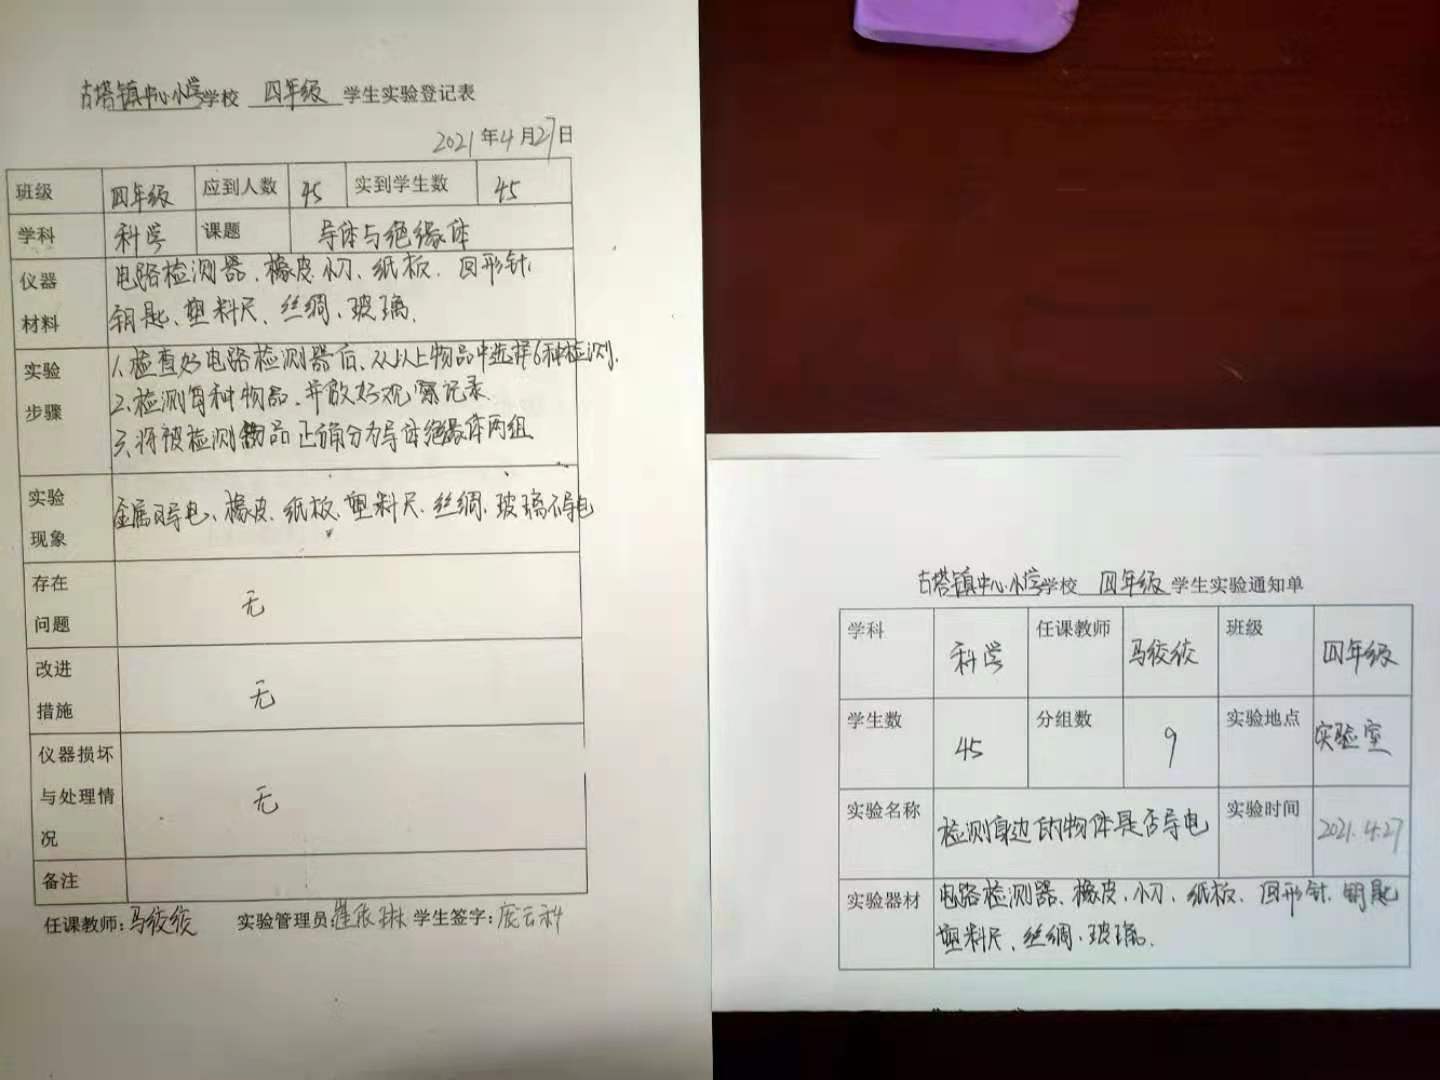 古塔镇中心小学学校 四年级 学生实验登记表
2021年4月27日
班级 四年级 应到人数 45 实到学生数 45
学科 科学 课题 导体与绝缘体
仪器材料 电路检测器、橡皮、小刀、纸板、回形针、
钥匙、塑料尺、丝绸、玻璃。
实验步骤 1、检查好电路检测器后、从以上物品中选择6种检测。
2、检测每种物品、并做好观察记录.
3、将被检测物品正确分为导体绝缘体两组
实验现象 金属可导电、橡皮、纸板、塑料尺、丝绸、玻璃不导电
存在问题 无
改进措施 无
仪器损坏与处理情况 无
备注
任课教师:马绞绞 实验管理员: 学生签字:
古塔镇中心小学学校 四年级 学生实验通知单
学科 科学 任课教师 马绞绞 班级 四年级
学生数 45 分组数 9 实验地点 实验室
实验名称 检测身边的物体是否导电 实验时间 2021.4.27
实验器材 电路检测器、橡皮、小刀、纸板、回形针、钥匙
塑料尺、丝绸、玻璃。